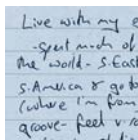 Live with my
-spent much of
the world - S. East
S. America & go to
(where I'm from
groove - feel v